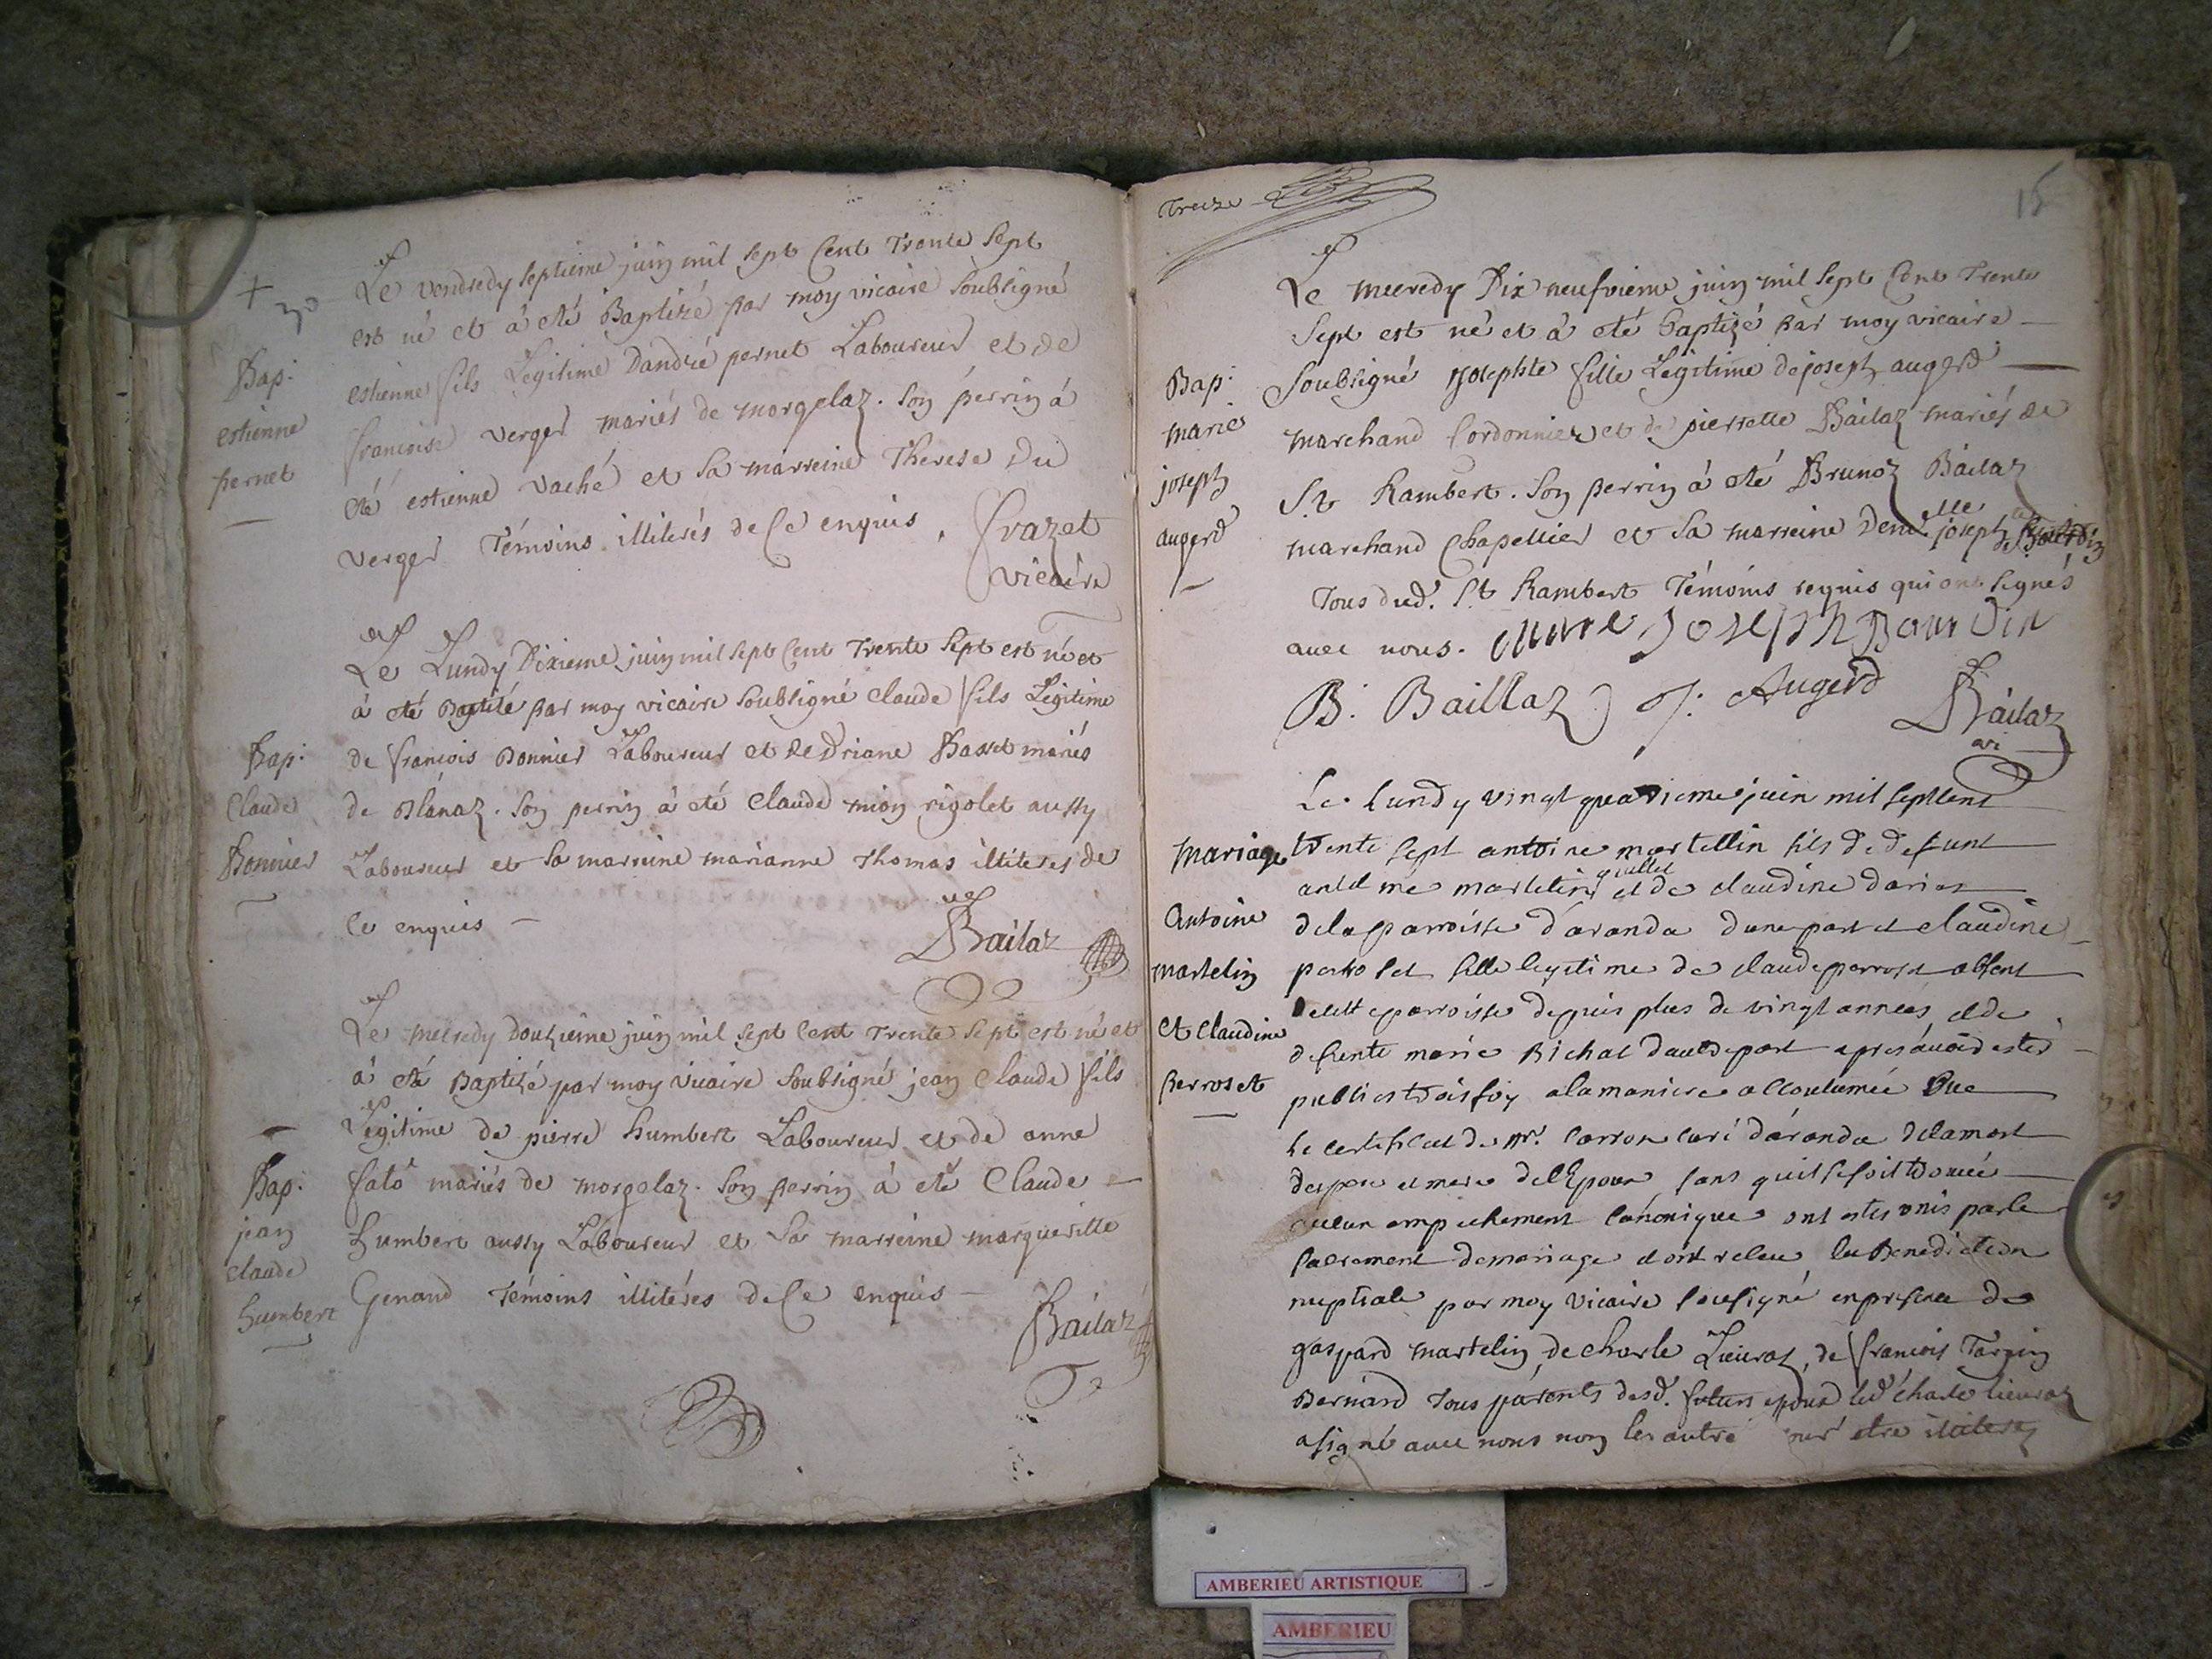 +
Bap:
estienne
pernet
Le vendredy septieme juin mil sept Cent Trente sept
est né et à été Baptizé par moy vicaire soubsigné
estienne fils Legitime D'andré pernet Laboureur et de
françoise verger mariés de morgelaz. son perrin á
été estienne vaché et sa marreine Therese Du
verger Témoins illiterés de Ce enquis. Crazet
vicaire
Bap:
Claude
Bonnier
Le Lundy Dixieme juin mil sept Cent Trente sept est né et
à été Baptisé par moy vicaire soubsigné claude fils Legitime
de françois Bonnier Laboureur et de Driane Basset mariés
de Blanaz. son perrin à été Claude mion rigolet aussy
Laboureur et sa marreine marianne Thomas illiterés de
Ce enquis
Bailaz
Bap:
jean
claude
humbert
Le mecredy douzieme juin mil sept Cent Trente sept est né et
à été Baptizé par moy vicaire soubsigné jean Claude fils
Legitime de pierre humbert Laboureur et de anne
mariés de morgelaz. son perrin à été Claude
humbert aussy Laboureur et sa marreine margueritte
Genaud Témoins illitéres de Ce enquis
Bailaz
Treize
15
Bap:
marie
joseph
augerd
Le mecredy Dix neufvieme juin mil sept Cent Trente
sept est né et à été baptizé par moy vicaire
soubsigné josephte fille Légitime de joseph augerd
marchand Cordonnier et de pierrette Bailaz mariés de
St Rambert. son perrin à été Brunoz Bailaz
marchand Chapellier et sa marreine Demelle joseph Bourdin
Tous dud. St Rambert Témoins requis qui ont signés
avec nous. Marie Joseph Bourdin
B: Baillaz J: Augerd Bailaz
vi
mariage
Antoine
martelin
et Claudine
perroset
Le lundy vingt quatrieme juin mil sept cent
trente sept antoine martellin fils de defunt
martelin et de claudine
de la parroisse d'aranda d'une part et claudine
perroset fille legitime de claude perroset absent
de cette parroisse depuis plus de vingt annees et de
defunte marie Bichat d'autre part apres avoir estés
publies trois foix a la maniere accoutumée Vue
le certificat de Mr. curé d'áranda de la mort
des pere et mere de l'Epoux sans qu'il se soit trouué
aucun empechement canonique ont estés unis par le
sacrement de mariage et ont receu la Benediction
nuptiale par moy Vicaire sousigné en presence de
gaspard martelin, de charle Lieuraz, de françois Targin
Bernard Tous parents desd. futurs epoux led charle lieuraz
a signé avec nous non les autre pour etre illiteres
AMBERIEU ARTISTIQUE
AMBERIEU